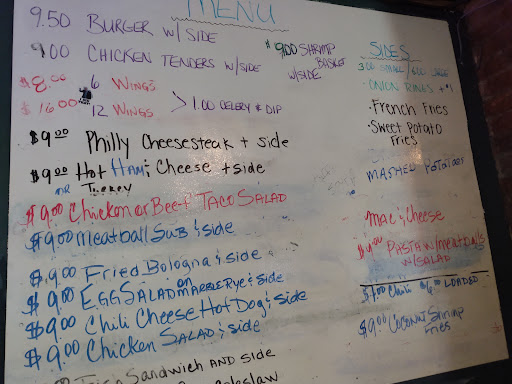 MENU
9.50 BURGER W/ SIDE
9.00 CHICKEN TENDERS W/SIDE
$9.00 SHRIMP
BASKET
W/SIDE
$8.00 6 WINGS
$16.00 12 WINGS
> 1.00 CELERY & DIP
$9.00 Philly Cheesesteak + side
$9.00 Hot HAM & Cheese + side
OR Turkey
$9.00 Chicken or Beef TACO SALAD
$9.00 Meatball SUB & side
$9.00 Fried Bologna & side
$9.00 EGG SALAD ON MARBLE Rye & side
$9.00 Chili Cheese Hot Dog & side
$9.00 Chicken SALAD & side
Sandwich AND side
coleslaw
SIDES
3.00 SMALL / 6.00 LARGE
ONION RINGS + $1
· French Fries
· Sweet Potato
Fries
MASHED POTATOES
MAC & Cheese
PASTA W/ meatballs
W/ SALAD
$4.00 Chili $6.00 LOADED
$9.00 COCONUT Shrimp
Fries